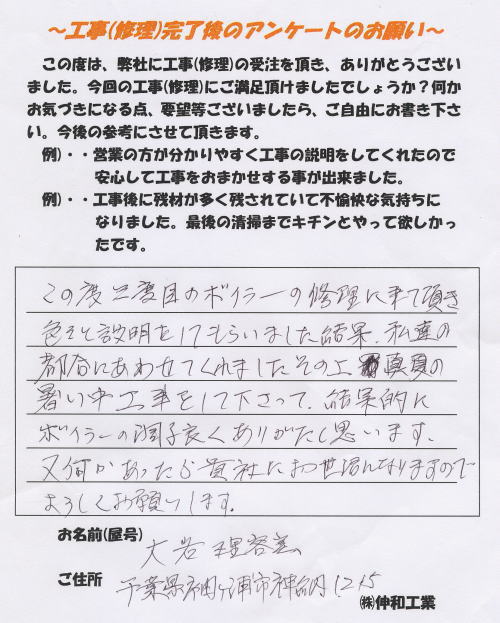 ～工事(修理)完了後のアンケートのお願い～
この度は、弊社に工事(修理)の受注を頂き、ありがとうござい
ました。今回の工事(修理)にご満足頂けましたでしょうか？何か
お気づきになる点、要望等ございましたら、ご自由にお書き下さ
い。今後の参考にさせて頂きます。
例)・・営業の方が分かりやすく工事の説明をしてくれたので
安心して工事をおまかせする事が出来ました。
例)・・工事後に残材が多く残されていて不愉快な気持ちに
なりました。最後の清掃までキチンとやって欲しかっ
たです。
この度二度目のボイラーの修理に来て頂き
色々と説明をしてもらいました結果、私達の
都合にあわせてくれましたその上 真夏の
暑い中工事をして下さって、結果的に
ボイラーの調子良くありがたく思います。
又何かあったら貴社にお世話になりますので
よろしくお願いします。
お名前(屋号) 大岩理容室
ご住所 千葉県袖ヶ浦市神納1215
㈱伸和工業